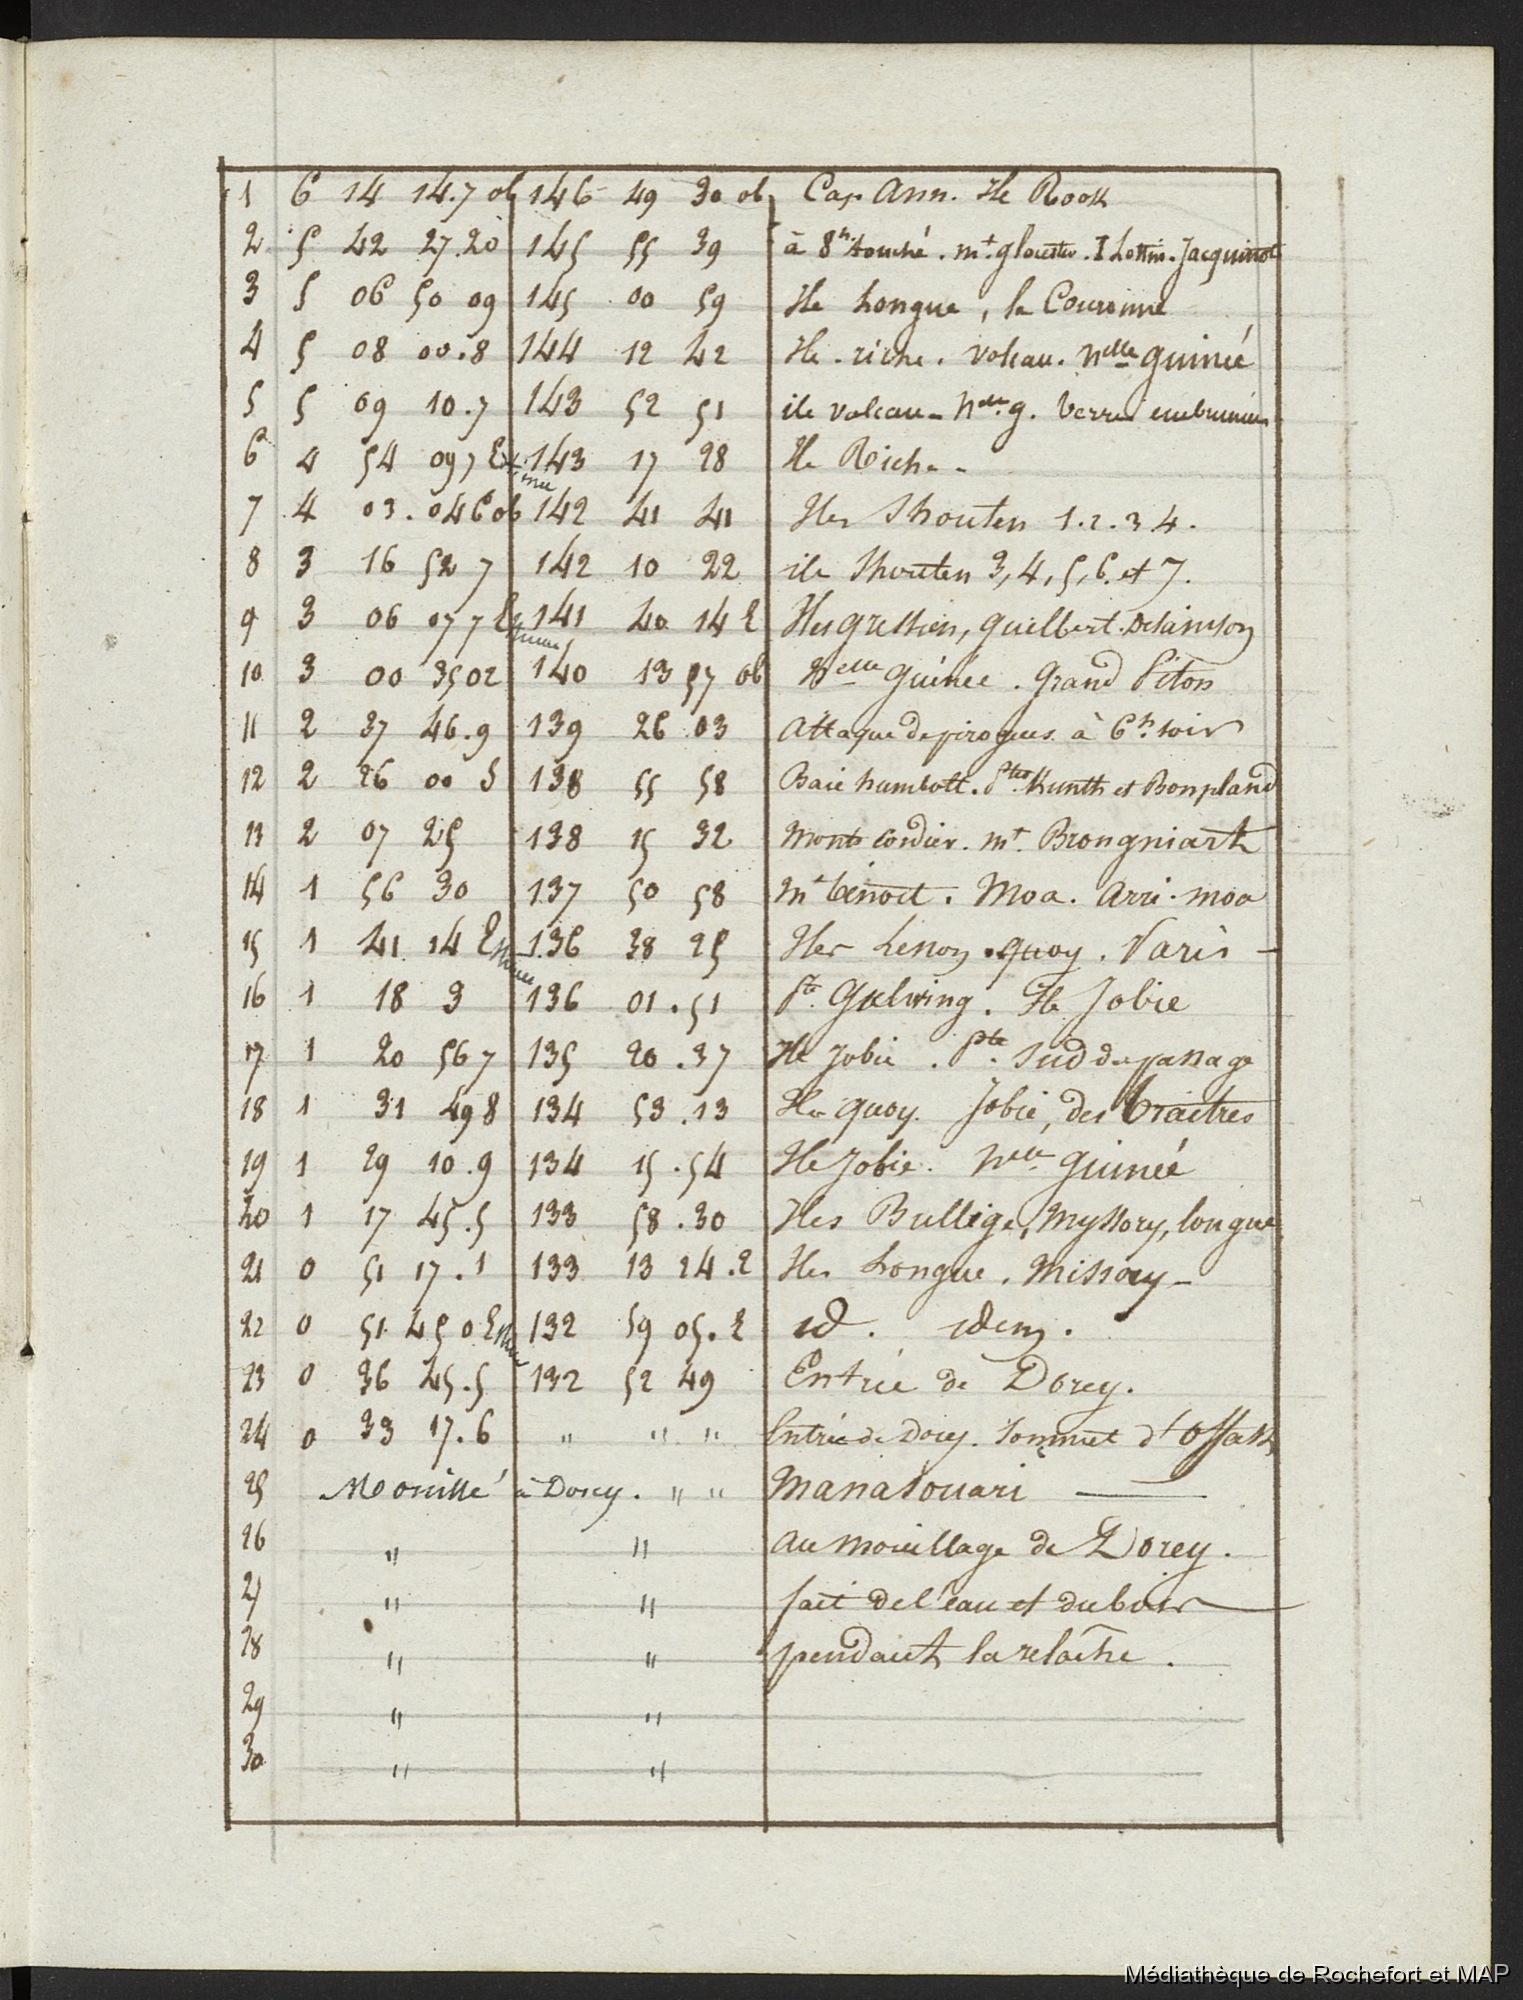 1 6 14 14.7 ob 146 49 30 ob Cap Ann. Ile Rook
2 5 42 27.20 145 55 39 à 8h touché. mt. glouster. I Lottin. Jacquinot
3 5 06 50 09 145 00 59 Ile Longue, la Couronne
4 5 08 00.8 144 12 42 Ile. riche. volcau. nelle guineé
5 5 09 10.7 143 52 51 ile volcau - nelle g. terres embrumées
6 4 54 09 7 Estimée 143 17 28 Ile Riche -
7 4 03. 046 ob 142 41 41 Iles Shouten 1. 2. 3 4.
8 3 16 52 7 142 10 22 ile Shouten 3, 4, 5, 6. et 7.
9 3 06 07 7 Estimée 141 40 14 E Iles gressien, guilbert. Deblanson
10 3 00 35 02 140 13 57 ob Nelle guinée. grand Piton
11 2 37 46.9 139 26 03 attaque de pirogues à 6h. soir
12 2 26 00 5 138 55 58 Baie humbolt. Ptes Kunth et Bonpland
13 2 07 25 138 15 32 monts cordier. mt. Brongniart
14 1 56 30 137 50 58 mt benoit. Moa. arri-moa
15 1 41 14 Estimée 136 38 25 Iles quoy.
16 1 18 3 136 01.51 Pte. Guelwing. Ile Jobie
17 1 20 56 7 135 20.37 Ile Jobie. Pte. Sud du passage
18 1 31 49 8 134 53.13 Ile quoy. Jobie, des traitres
19 1 29 10.9 134 15.54 Ile Jobie. nelle guineé
20 1 17 45.5 133 58.30 Iles Bullige, myssory, longue
21 0 51 17.1 133 13 24.2 Iles Longue. missory -
22 0 51 45 0 Estimée 132 59 05.2 id. idem.
23 0 36 45.5 132 52 49 Entrée de Dorey.
24 0 33 17.6 " " " Entrée de Dorey. Sommet d'offak
25 Mouillé à Dorey. " " Manasouari
26 " " au mouillage de Dorey.
27 " " fait de l'eau et du bois
28 " " pendant la relâche.
29 " "
30 " "
Médiathèque de Rochefort et MAP